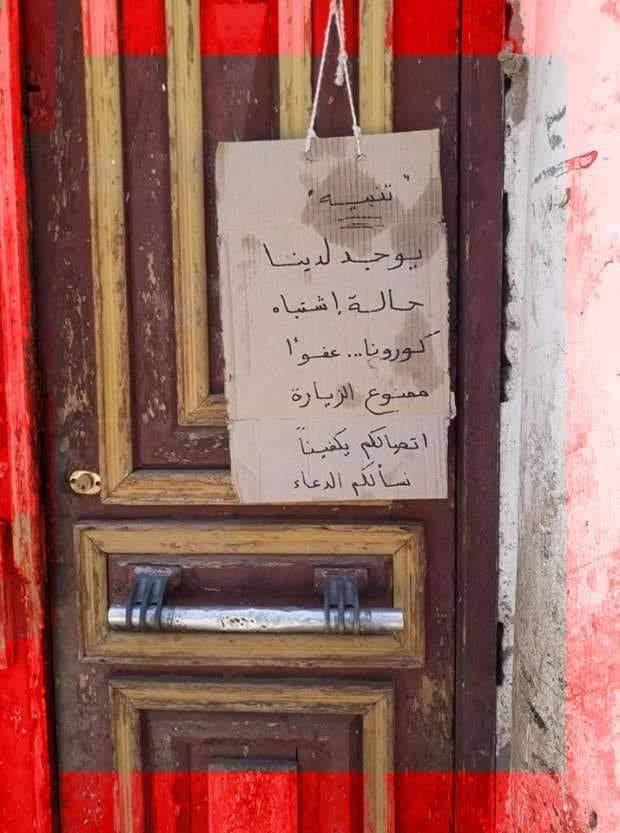 " تنبيه "
يوجد لدينا
حالة إشتباه
كورونا.. عفوًا
ممنوع الزيارة
اتصالكم يكفينا
نسألكم الدعاء